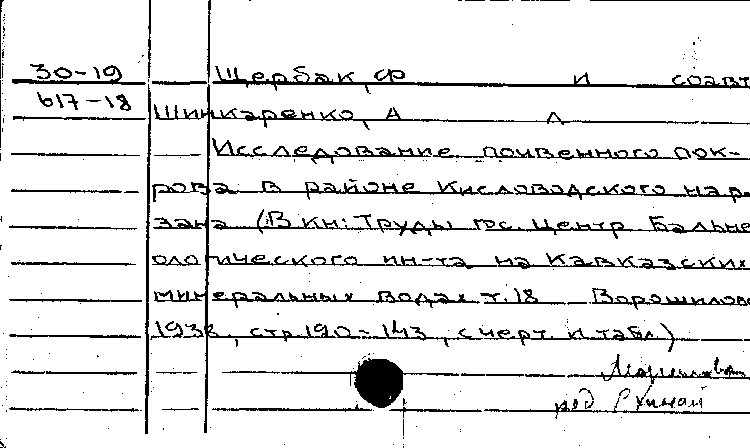 30-19 Щербак, Ф и соавт
617-18 Шинкаренко, А А
Исследование почвенного пок-
рова в районе Кисловодского нар
зана (В кн: Труды гос. центр Бальне
ологического ин-та на Кавказских
минеральных водах т. 18 Ворошилово
1938, стр 190-143, с черт. и табл.)
ред